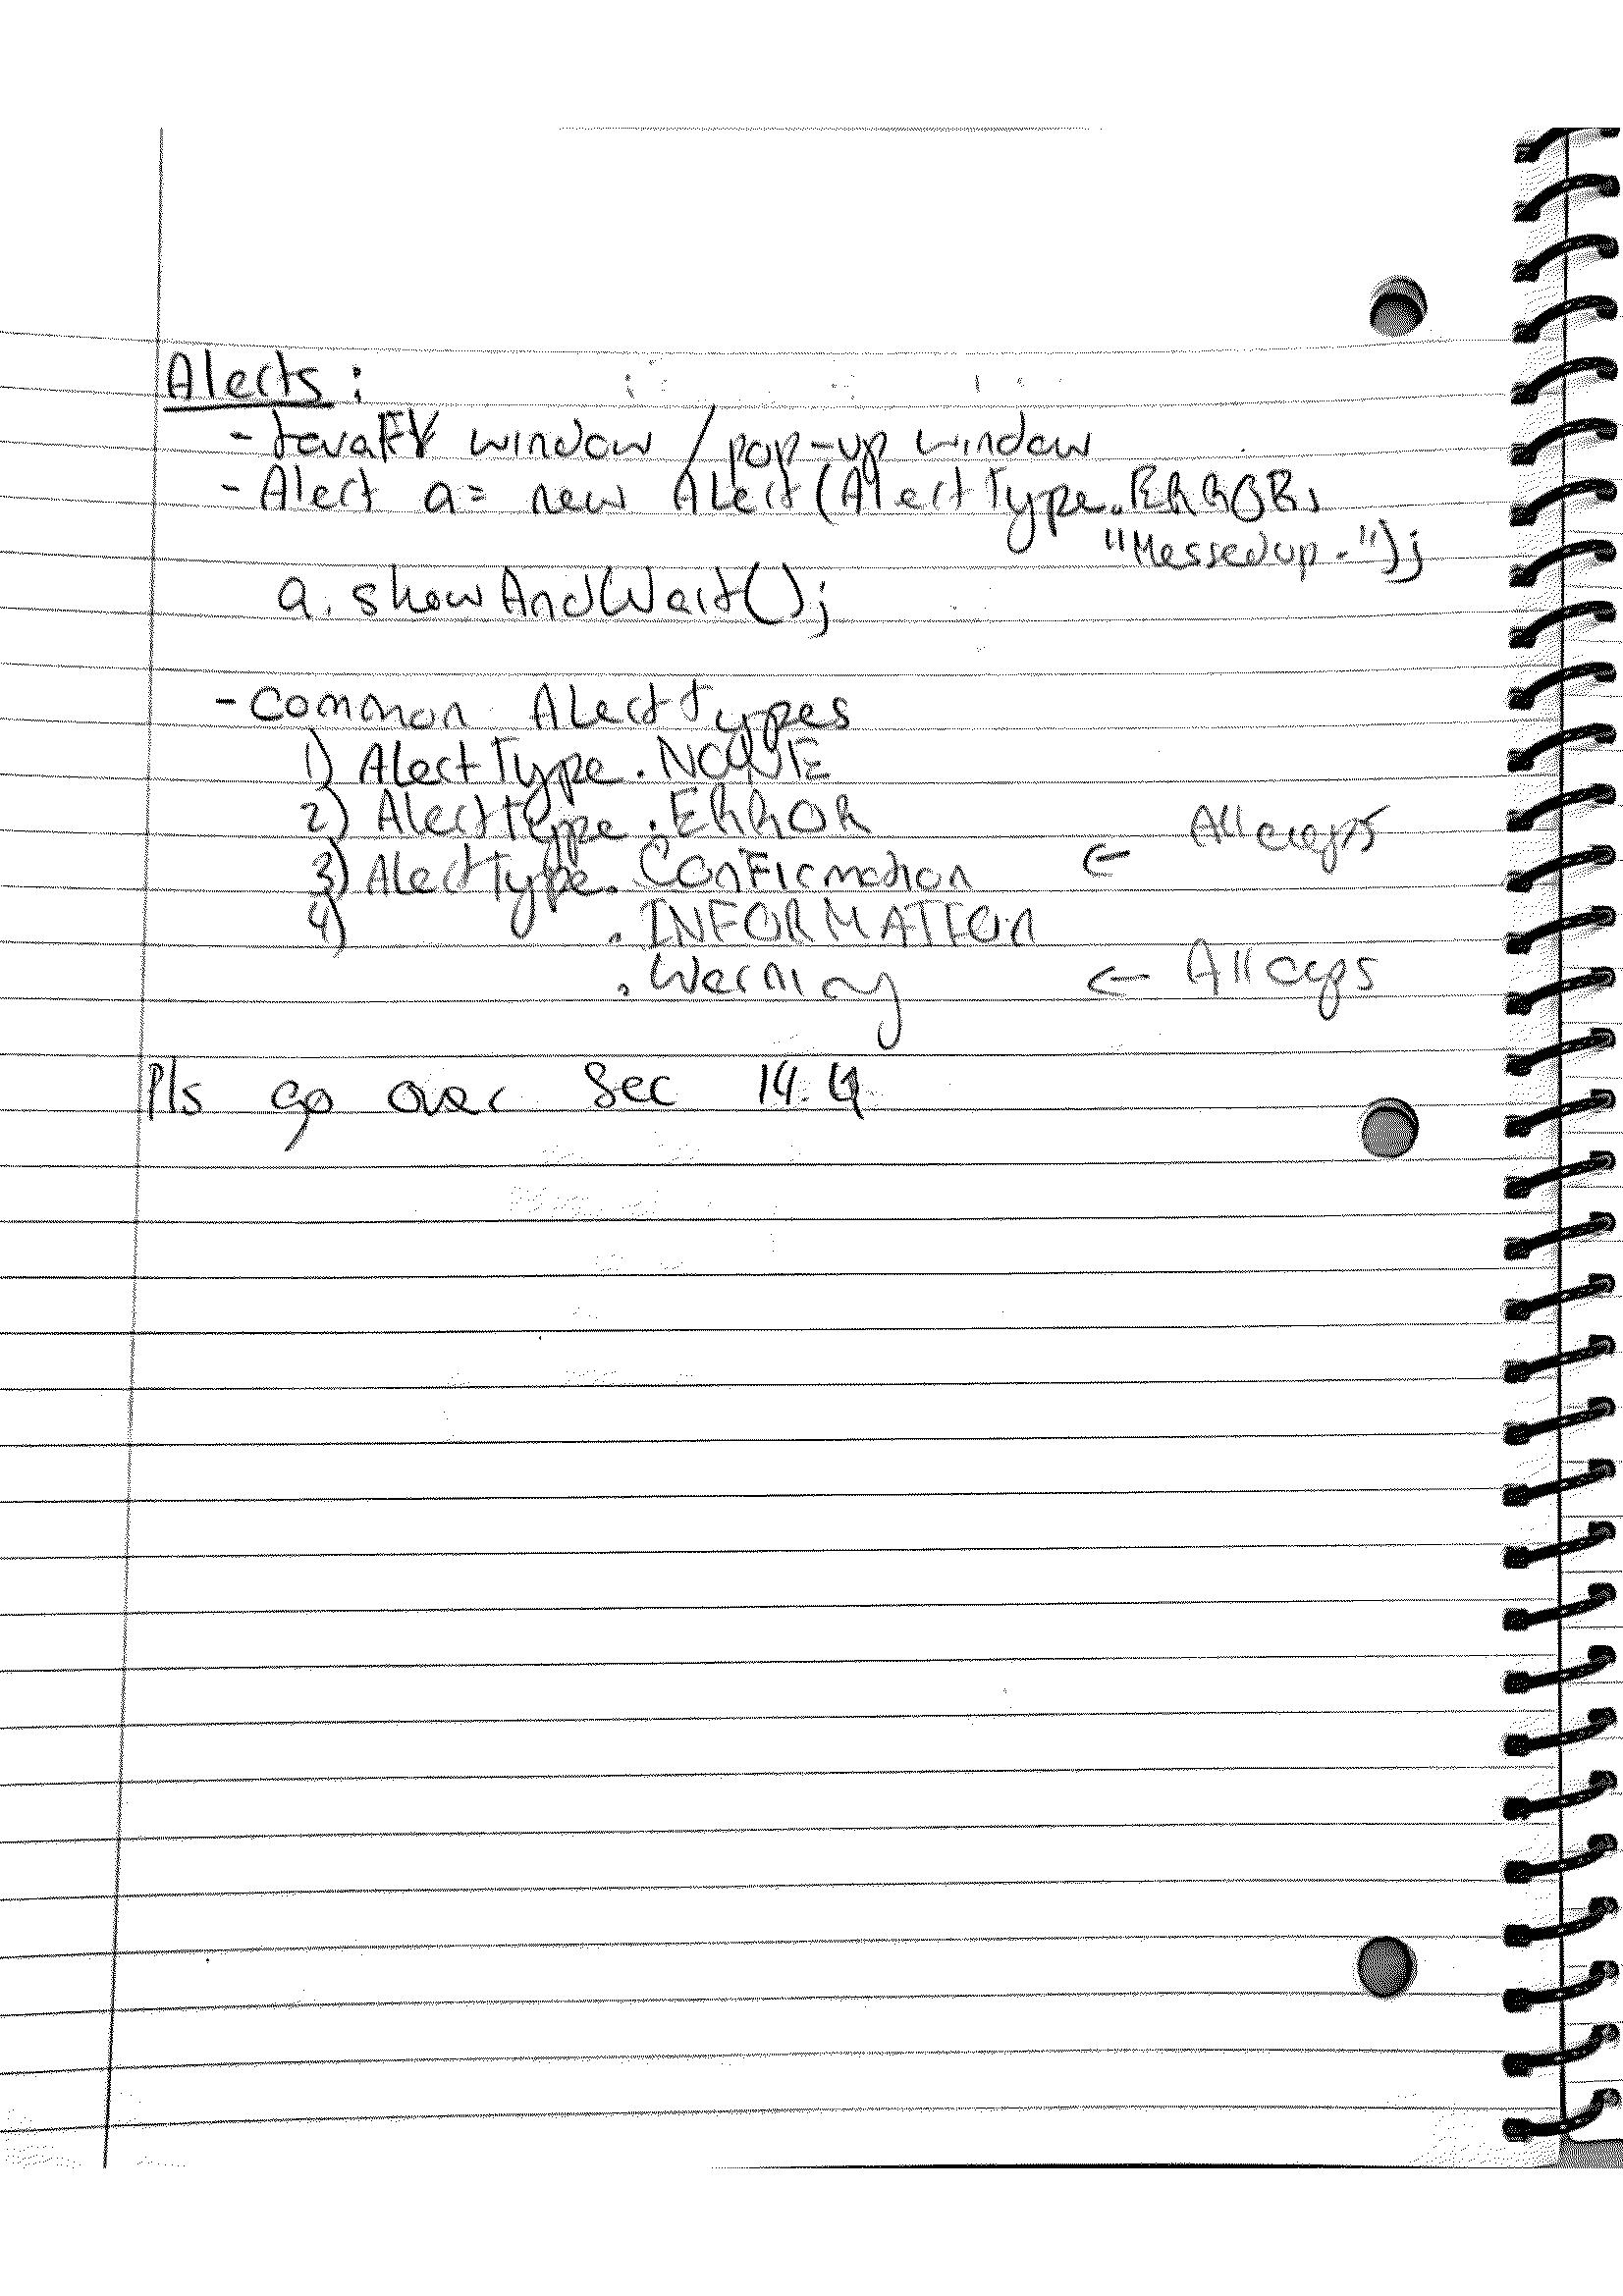 Alerts :
- JavaFX window / pop-up window
- Alert a = new Alert(AlertType.ERROR,
"Messed up.");
a. showAndWait();
- Common Alert types
1) AlertType.NONE
2) AlertType.ERROR
3) AlertType.Confirmation ← All caps
4) .INFORMATION
.Warning ← All caps
Pls go over Sec 14.